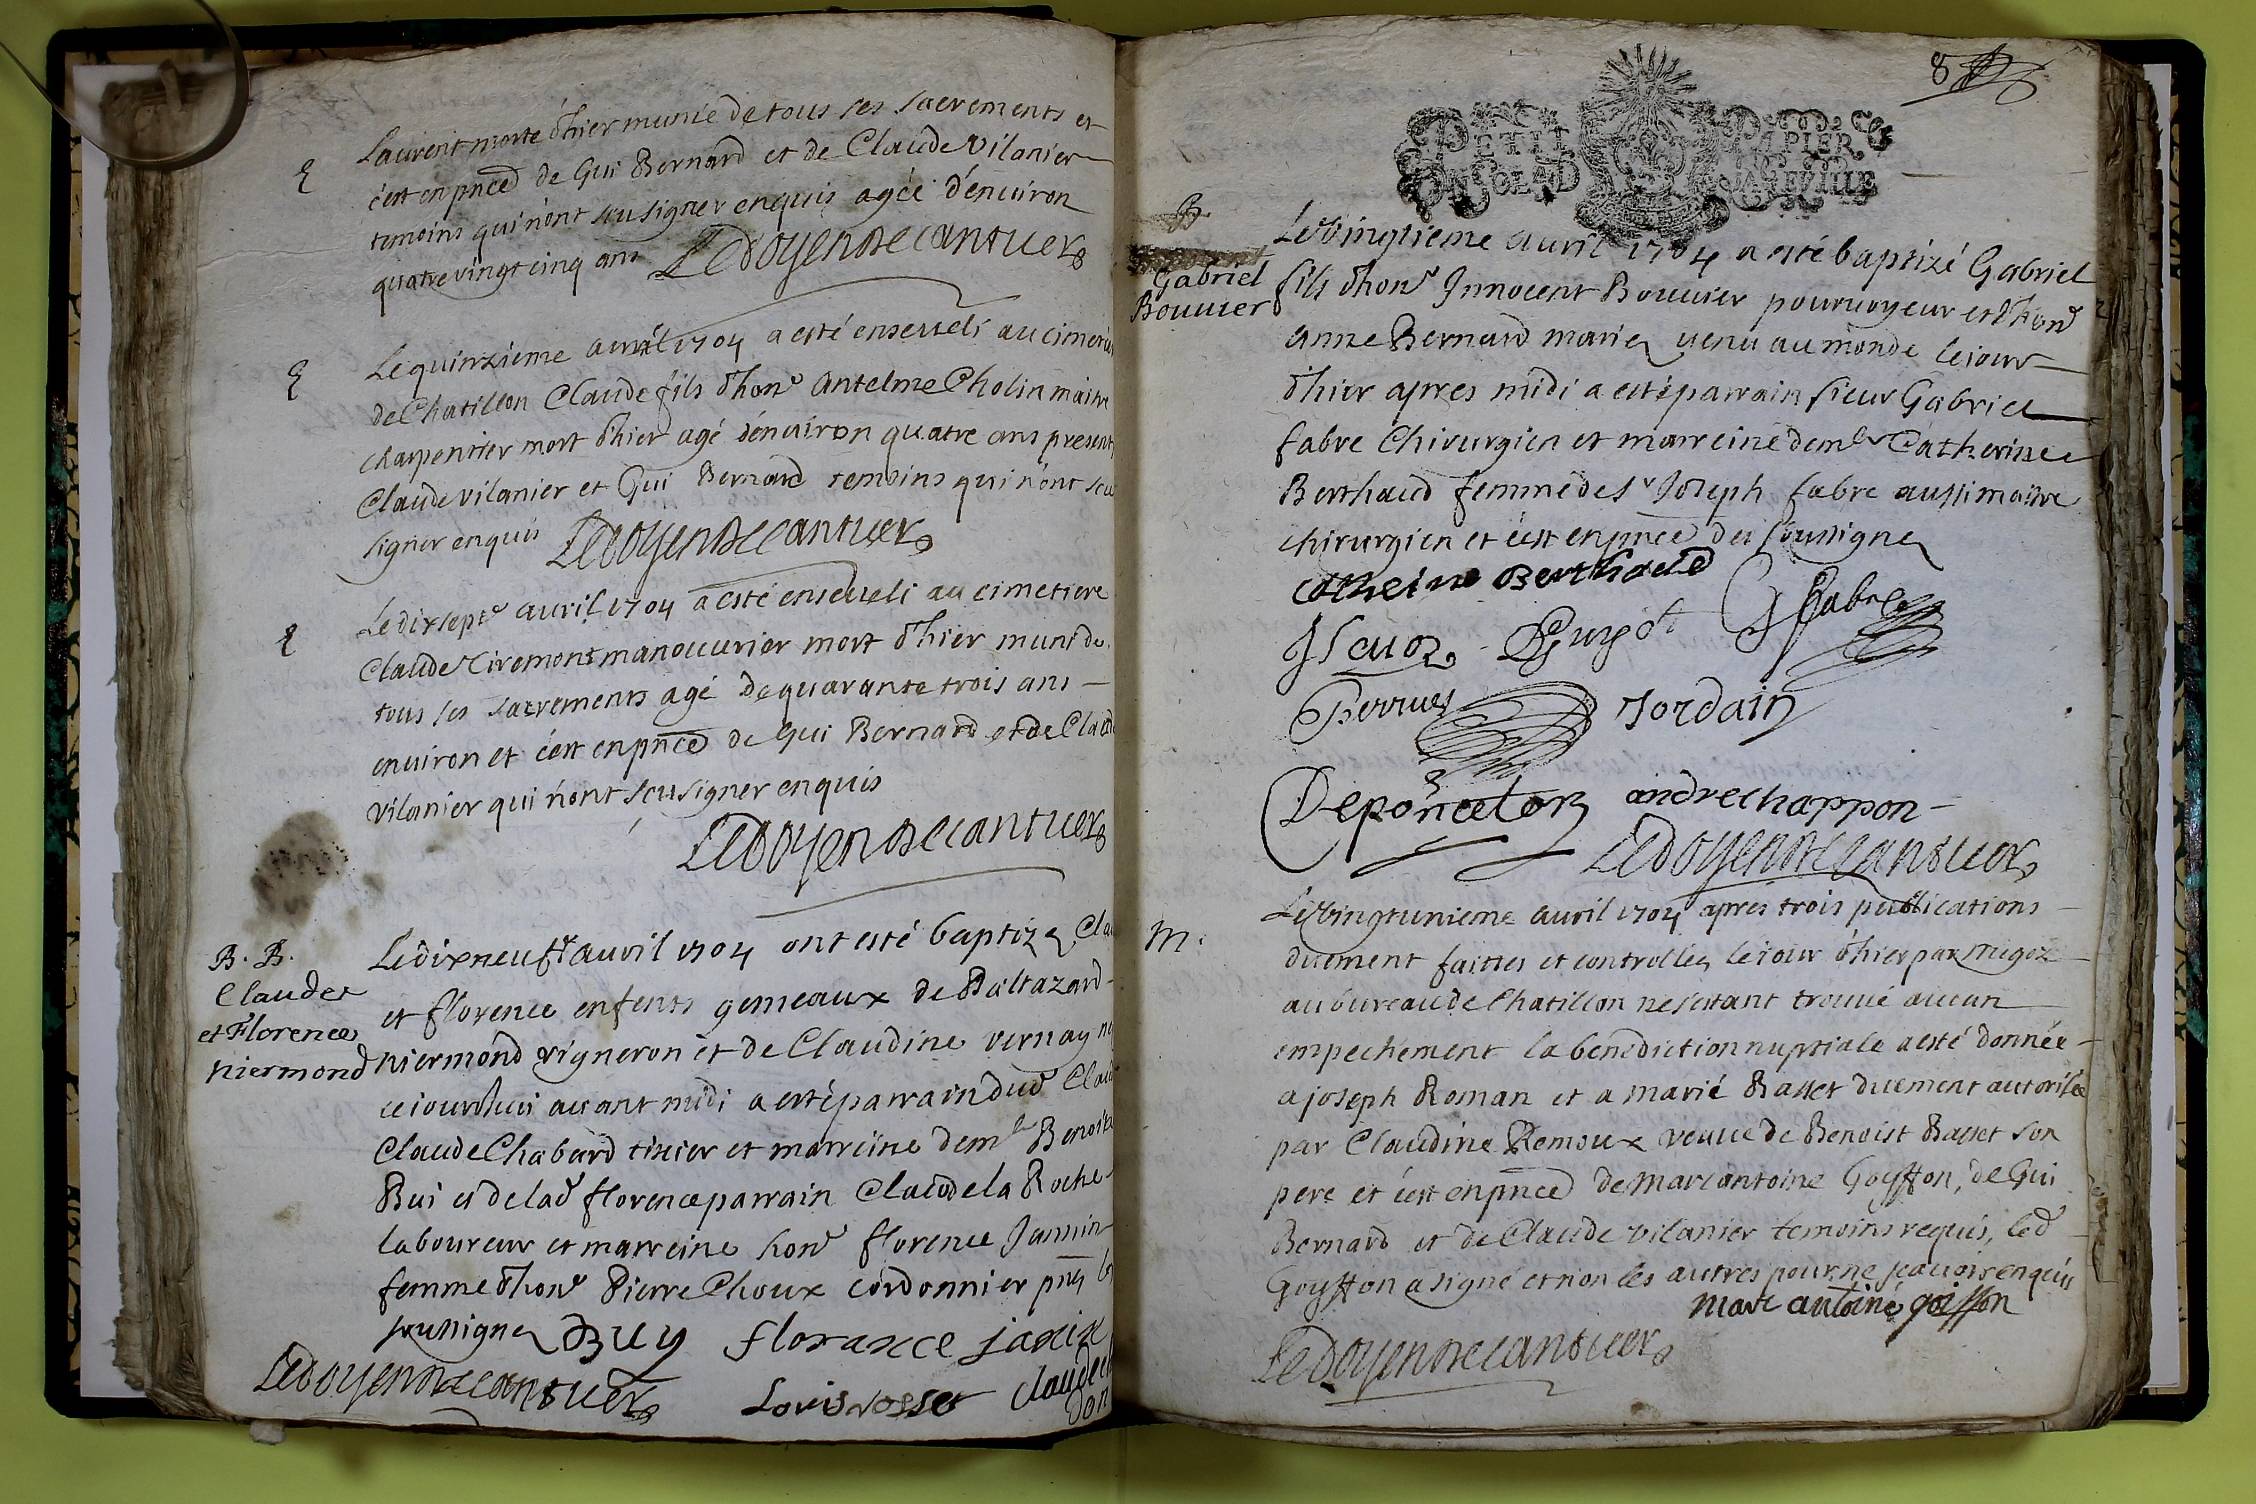 Laurent morte d'hier munie de tous ses sacrements et
c'est en pnce de Gui Bernard et de Claude Vilanier
temoins qui n'ont sceu signer enquis agée d'environ
quatre vingt cinq ans Ledoyen de
E
Le quinzieme avril 1704 a esté enseveli au cimetiere
de Chatillon Claude fils d'honr Antelme Cholin maitre
charpentier mort d'hier agé d'environ quatre ans present
Claude vilanier et Gui Bernard temoins qui n'ont sceu
signer enquis Ledoyen de
E
Le dix septe avril 1704 a esté enseveli au cimetiere
Claude Tiremont manouvrier mort d'hier muni de
tous ses sacrements agé de quarante trois ans
environ et c'est en pnce de Gui Bernard et de Claude
vilanier qui n'ont sceu signer enquis
Ledoyen de
E
B. B.
Claude et
et Florence
niermond
Le dix neufe avril 1704 ont esté baptizes Cla
et florence enfents gemeaux de Baltazard
niermond vigneron et de Claudine vernay
ce iourdhui avant midi a esté parrain dud Claude
Claude Chabard tixier et marreine demle Benoite
Bui et de lad florence parrain Claude la Roche
laboureur et marreine hone florence Jannin
femme d'honr Pierre Choux cordonnier pnts les
soussignes Buy florance janin
Ledoyen de Louis vosset claude
8
PETIT PAPIER
B.
Gabriel
Bouvier
Le vingtieme avril 1704 a esté baptizé Gabriel
fils d'honr Innocent Bouvier pourvoyeur et d'hone
anne Bernard mariez venu au monde le iour
d'hier apres midi a esté parrain sieur Gabriel
fabre Chirurgien et marreine demle Catherine
Berthaud femme de sr Joseph fabre aussi maitre
chirurgien et c'est en pnce des soussignes
Catheine Berthaud G fabre
Guyot
Perruet Jordain
Deponceton andre chappon
Ledoyen de
m.
Le vingtunieme avril 1704 apres trois publications
duement faittes et controlleez le iour d'hier par migoz
au bureau de Chatillon ne s'estant trouvé aucun
empechement la benediction nuptiale a esté donnée
a joseph Roman et a marié Basset duement autorisée
par Claudine Remoux veuve de Benoist Basset son
pere et c'est en pnce de marc antoine Goyffon, de Gui
Bernard et de Claude vilanier temoins requis, led
Goyffon a signé et non les autres pour ne scavoir enquis
marc antoine goiffon
Ledoyen de